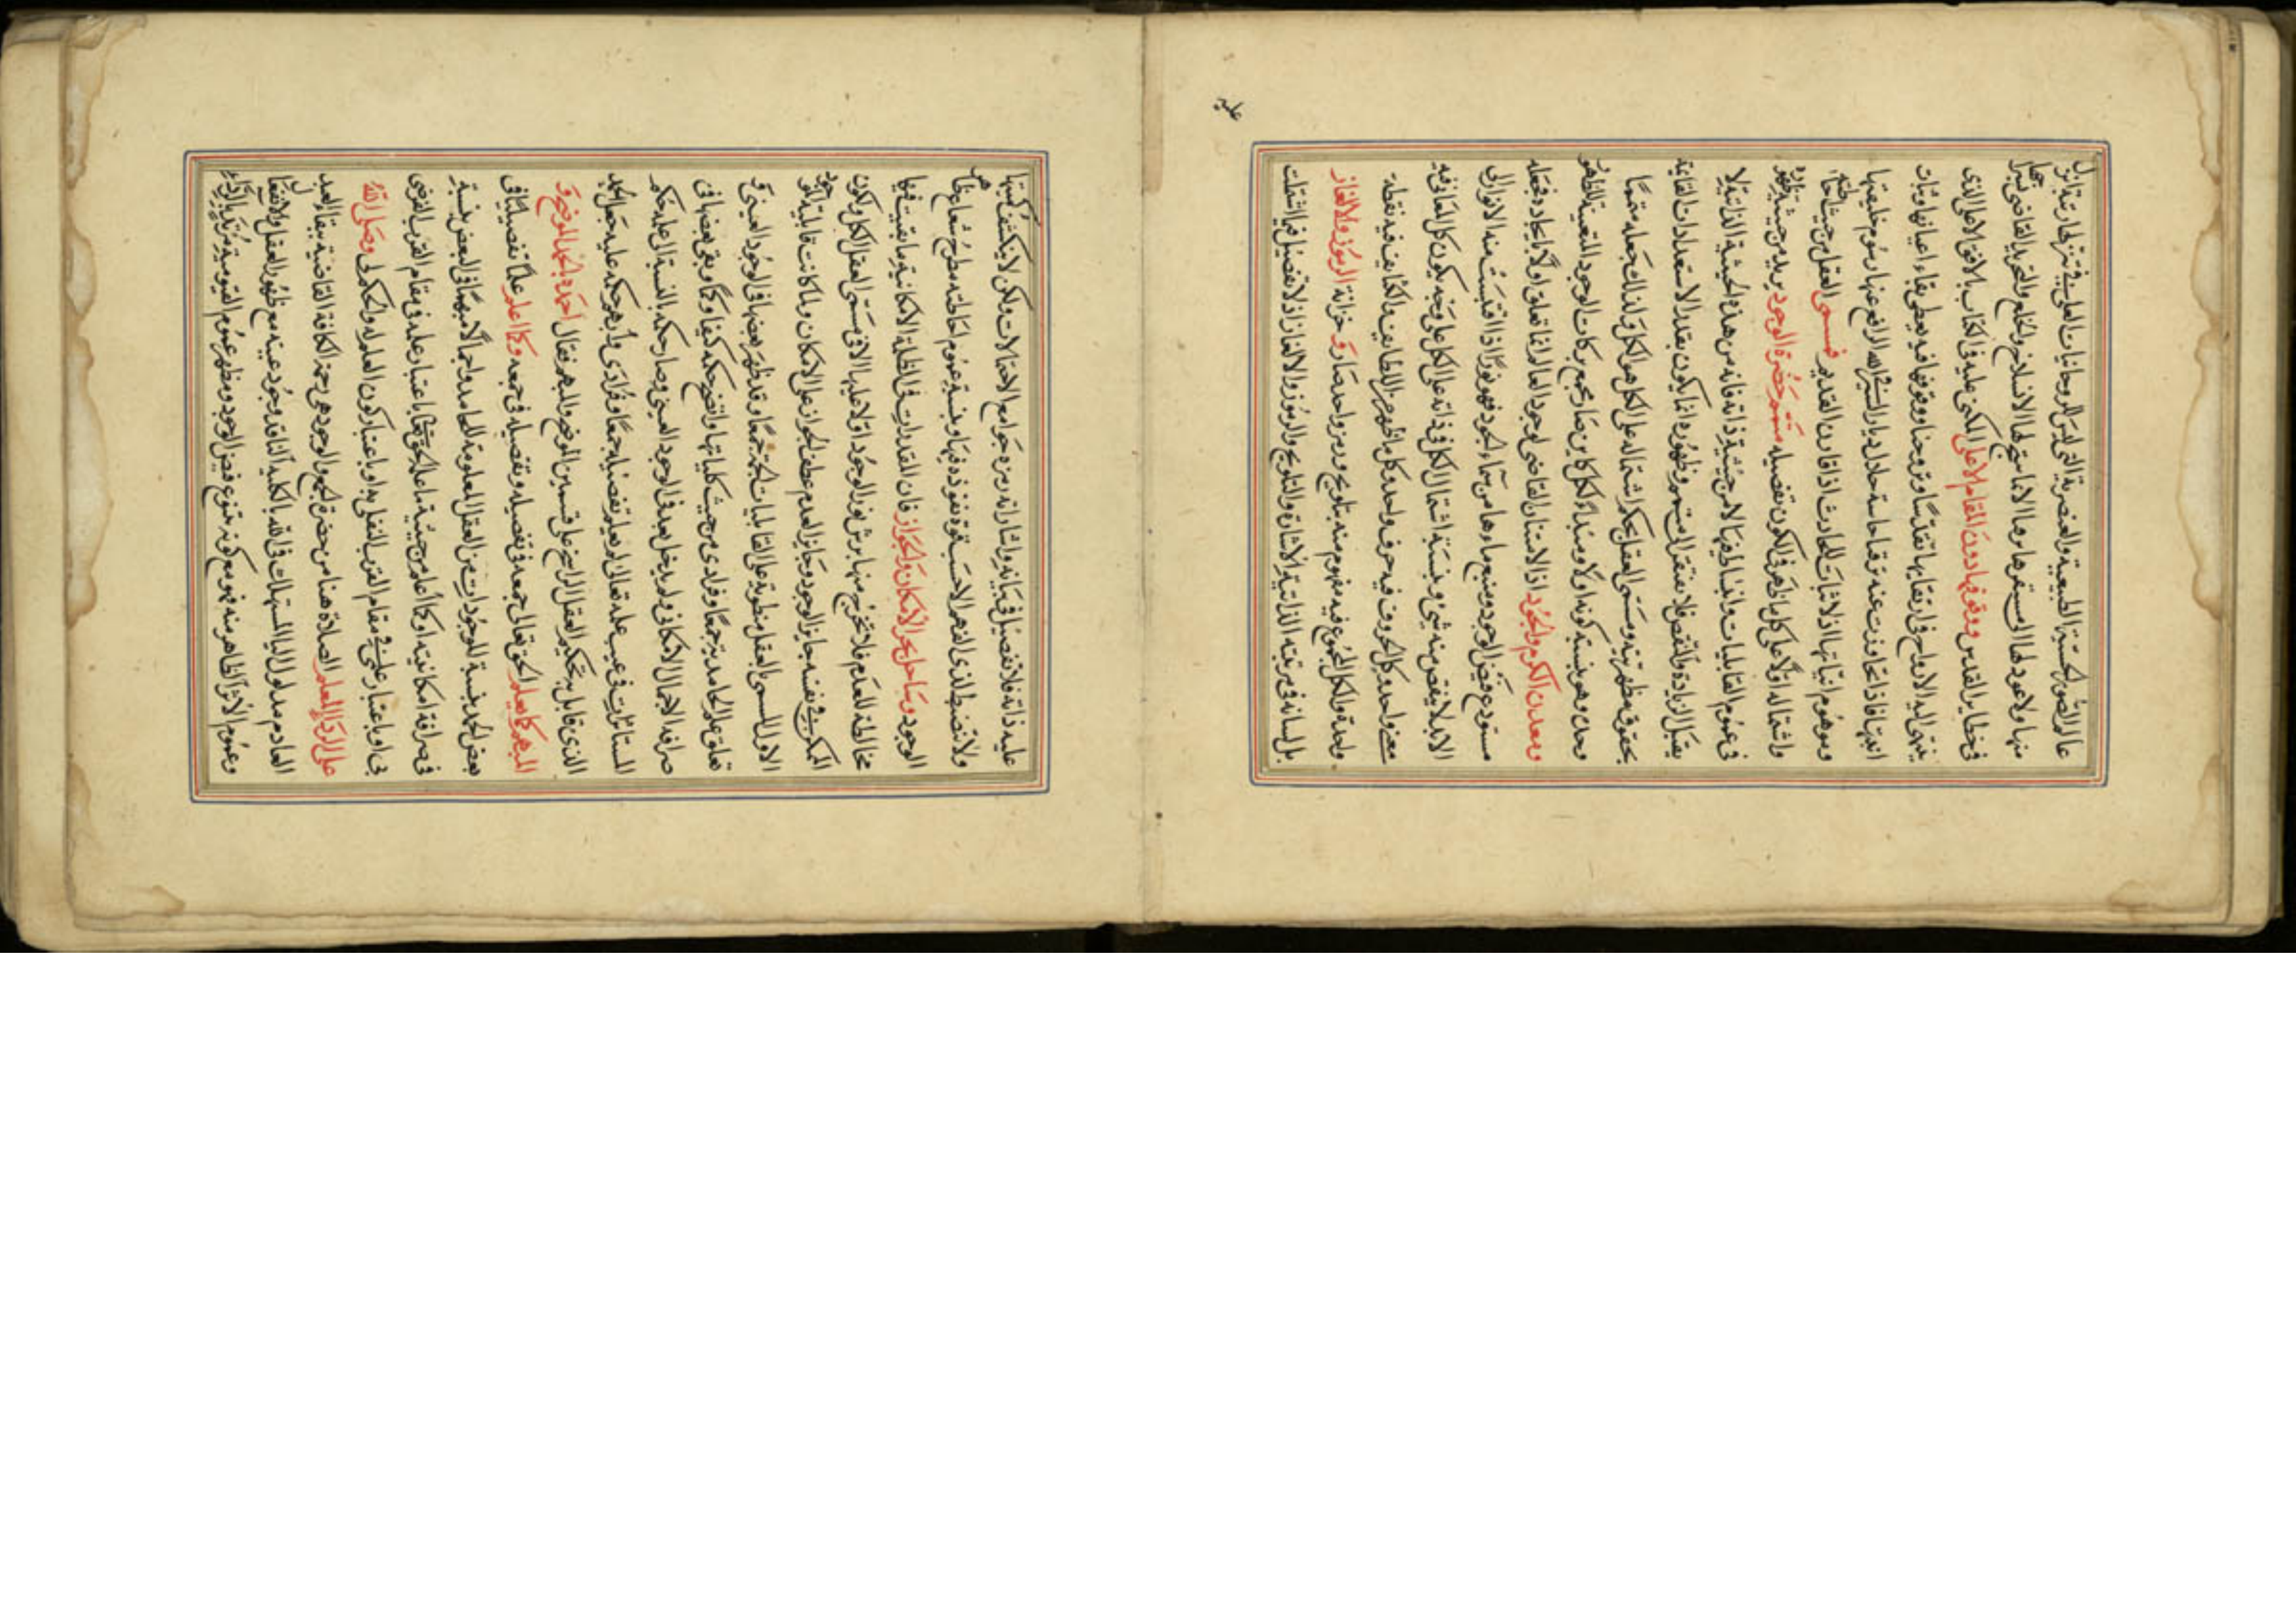 عالم الصور الحسية الطبيعية والعنصرية التي لبس الروحانيات العلى في تنزلها رتبة انزل
منها ولا عود لها الى مستقرها رها الا ما سبق لها الانسلاخ والخلع والتجريد القاضي
في حظاير القدس ووقوفها دون المقام الاعلى المكنى عليه في الكتاب بالافق الاعلى الذى
ينتهى اليه الارواح في ارتقايها تقدسا وتروحنا ووقوفها فيه يعطى بقاء اعيانها وثبات
وموهوم انياتها اذ لا اثبات للحادث اذا قارن القديم فسمى العقل من حيث
واشتماله اولا على كل ما ظهر في الكون تفصيله متمم حضرة الوجود يريد من حيث
في عموم القابليات وانبساطه فيها لا من حيثية ذاته فانه من هذه الحيثية الذاتية لا
يقبل الزيادة والنقص فلا يفتقر الى متمم وظهوره انما يكون بقدر الاستعدادات القابلة
بحقوق مظهريته ومسمى العقل بحكم اشتماله على الكل هو الكل ولذلك جعله متمما
وحدن وهو بنسبة كونه اولا ومبدأ لكل كاين صار مجمع بركات الوجود المتعينة للظهور
ومعدن الكرم والجود اذ الامتنان القاضى لوجود العالم انما تعلق اولا بايجاده فجعله
مستودع فيض الوجود ومنبع ماء وهامر من سماء الجود فهو نور اذا اقتبست منه الانوار الى
الابد لا ينقص منه شئ وبنسبة اشتمال الكل في ذاته على الكل على وجه يكون كل المعاني فيه
معنى واحد وكل الحروف فيه حرف واحد وكل ما ظهر من اللطايف والكثايف فيه نقطة
واحدة والكل المجموع فيه مفهوم منه بتلويح ورمز واحد صار وخزانة الرموز والالغاز
بل لسانه في مرتبته الذاتية الاشارة والتلويح والرموز والالغاز اذ لا تفصيل فيما اشتملت
عليه
عليه ذاته فلا تفصيل في بيانه واشاراته رمزه جوامع الاحتمالات ولكن لا يكشف كنهها
ولا تضبط لذى الفهم الا حسب قوة نفوذه فيها وبنسبة عموم احاطته مطرح شعاعها
الوجود وساحل بحر الامكان والجواز فان المقدرات في الظلمة الامكانية ما بقيت فيها
مخالطة للعدم فلا تخرج منها برش نور الوجود اولا عليها الا في مسمى العقل الكل ولكون
الممكن في نفسه جايز الوجود وجايز العدم عطف الجواز على الامكان ولما كانت قابلية
الاول المسمى بالعقل منطوية على القابليات الجمة جمعا وقد ظهر بعضها في الوجود العيني و
تعلق علم الحامد به جمعا وفرادى من حيث كلياتها واتضح حكمه كيفا وكما وبقى بعضها في
صرافة الاجمال الامكاني ولم يدخل بعد في الوجود العيني وصار حكمه بالنسبة الى علمه حكم
المستأثرات في غيب علمه تعالى لم يعلم تفصيله جمعا وفرادى ولم يبهم حكمه عليه جعل الحمد
الذى قابل به تحكيم العقل الراسخ على قسمين الموضح والمبهم فقال احمده بالحمد الموضح و
المبهم كما يعلم الحق تعالى جمعه في تفصيله وتفصيله في جمعه وكما اعلم علما تفصيليا في
بعض الحمد بنسبة الموجودات من العقل المعلومة للحامد واجماليا مبهما في البعض بنسبة
في صرافة امكانيته او كما اعلم من حيثية ما علم الحق تعالى باعتبار علمه في مقام القرب الفرضى
بى او باعتبار علمى في مقام القرب النفلى به او باعتبار كون العلم له والحكم لى وصلى الله
على الرداء المعلم الصلاة هنا من حضرة الجمع والوجود هى رحمة الكافة القاضية ببقاء العبد
العادم مدلول الياء المستهلك في الله بالكلية الفاقد وجود عينه مع ظهور العقل والافعال
وعموم الاثر الظاهر منه فهو مع كونه متبوع فيض الوجود ومظهر عموم القيومية مرتد بالرداء